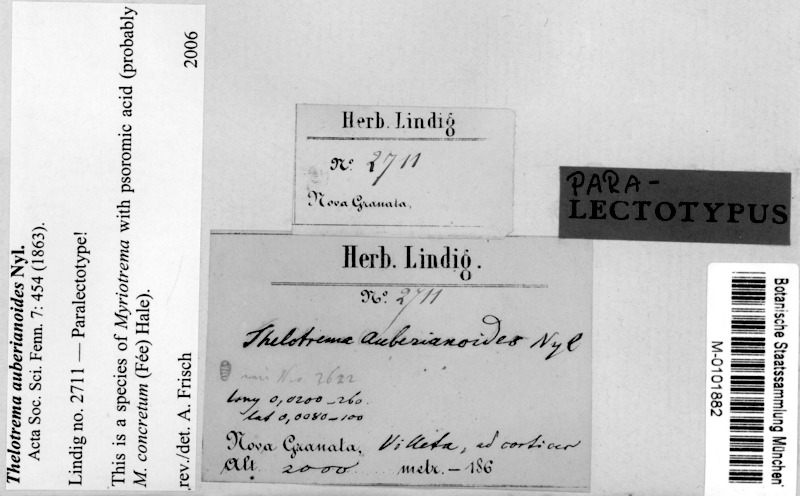 Thelotrema auberianoides Nyl.
Acta Soc. Sci. Fenn. 7: 454 (1863).
Lindig no. 2711 — Paralectotype!
This is a species of Myriotrema with psoromic acid (probably
M. concretum (Fée) Hale).
rev./det. A. Frisch 2006
Herb. Lindig
No. 2711
Nova Granata,
Herb. Lindig.
No. 2711
Thelotrema auberianoides Nyl
No 2622
long 0,0200-260.
lat 0,0080-100
Nova Granata, Villeta, ad cortices
Alt. 2000 metr. - 186
PARA-
LECTOTYPUS
Botanische Staatssammlung München
M-0101882